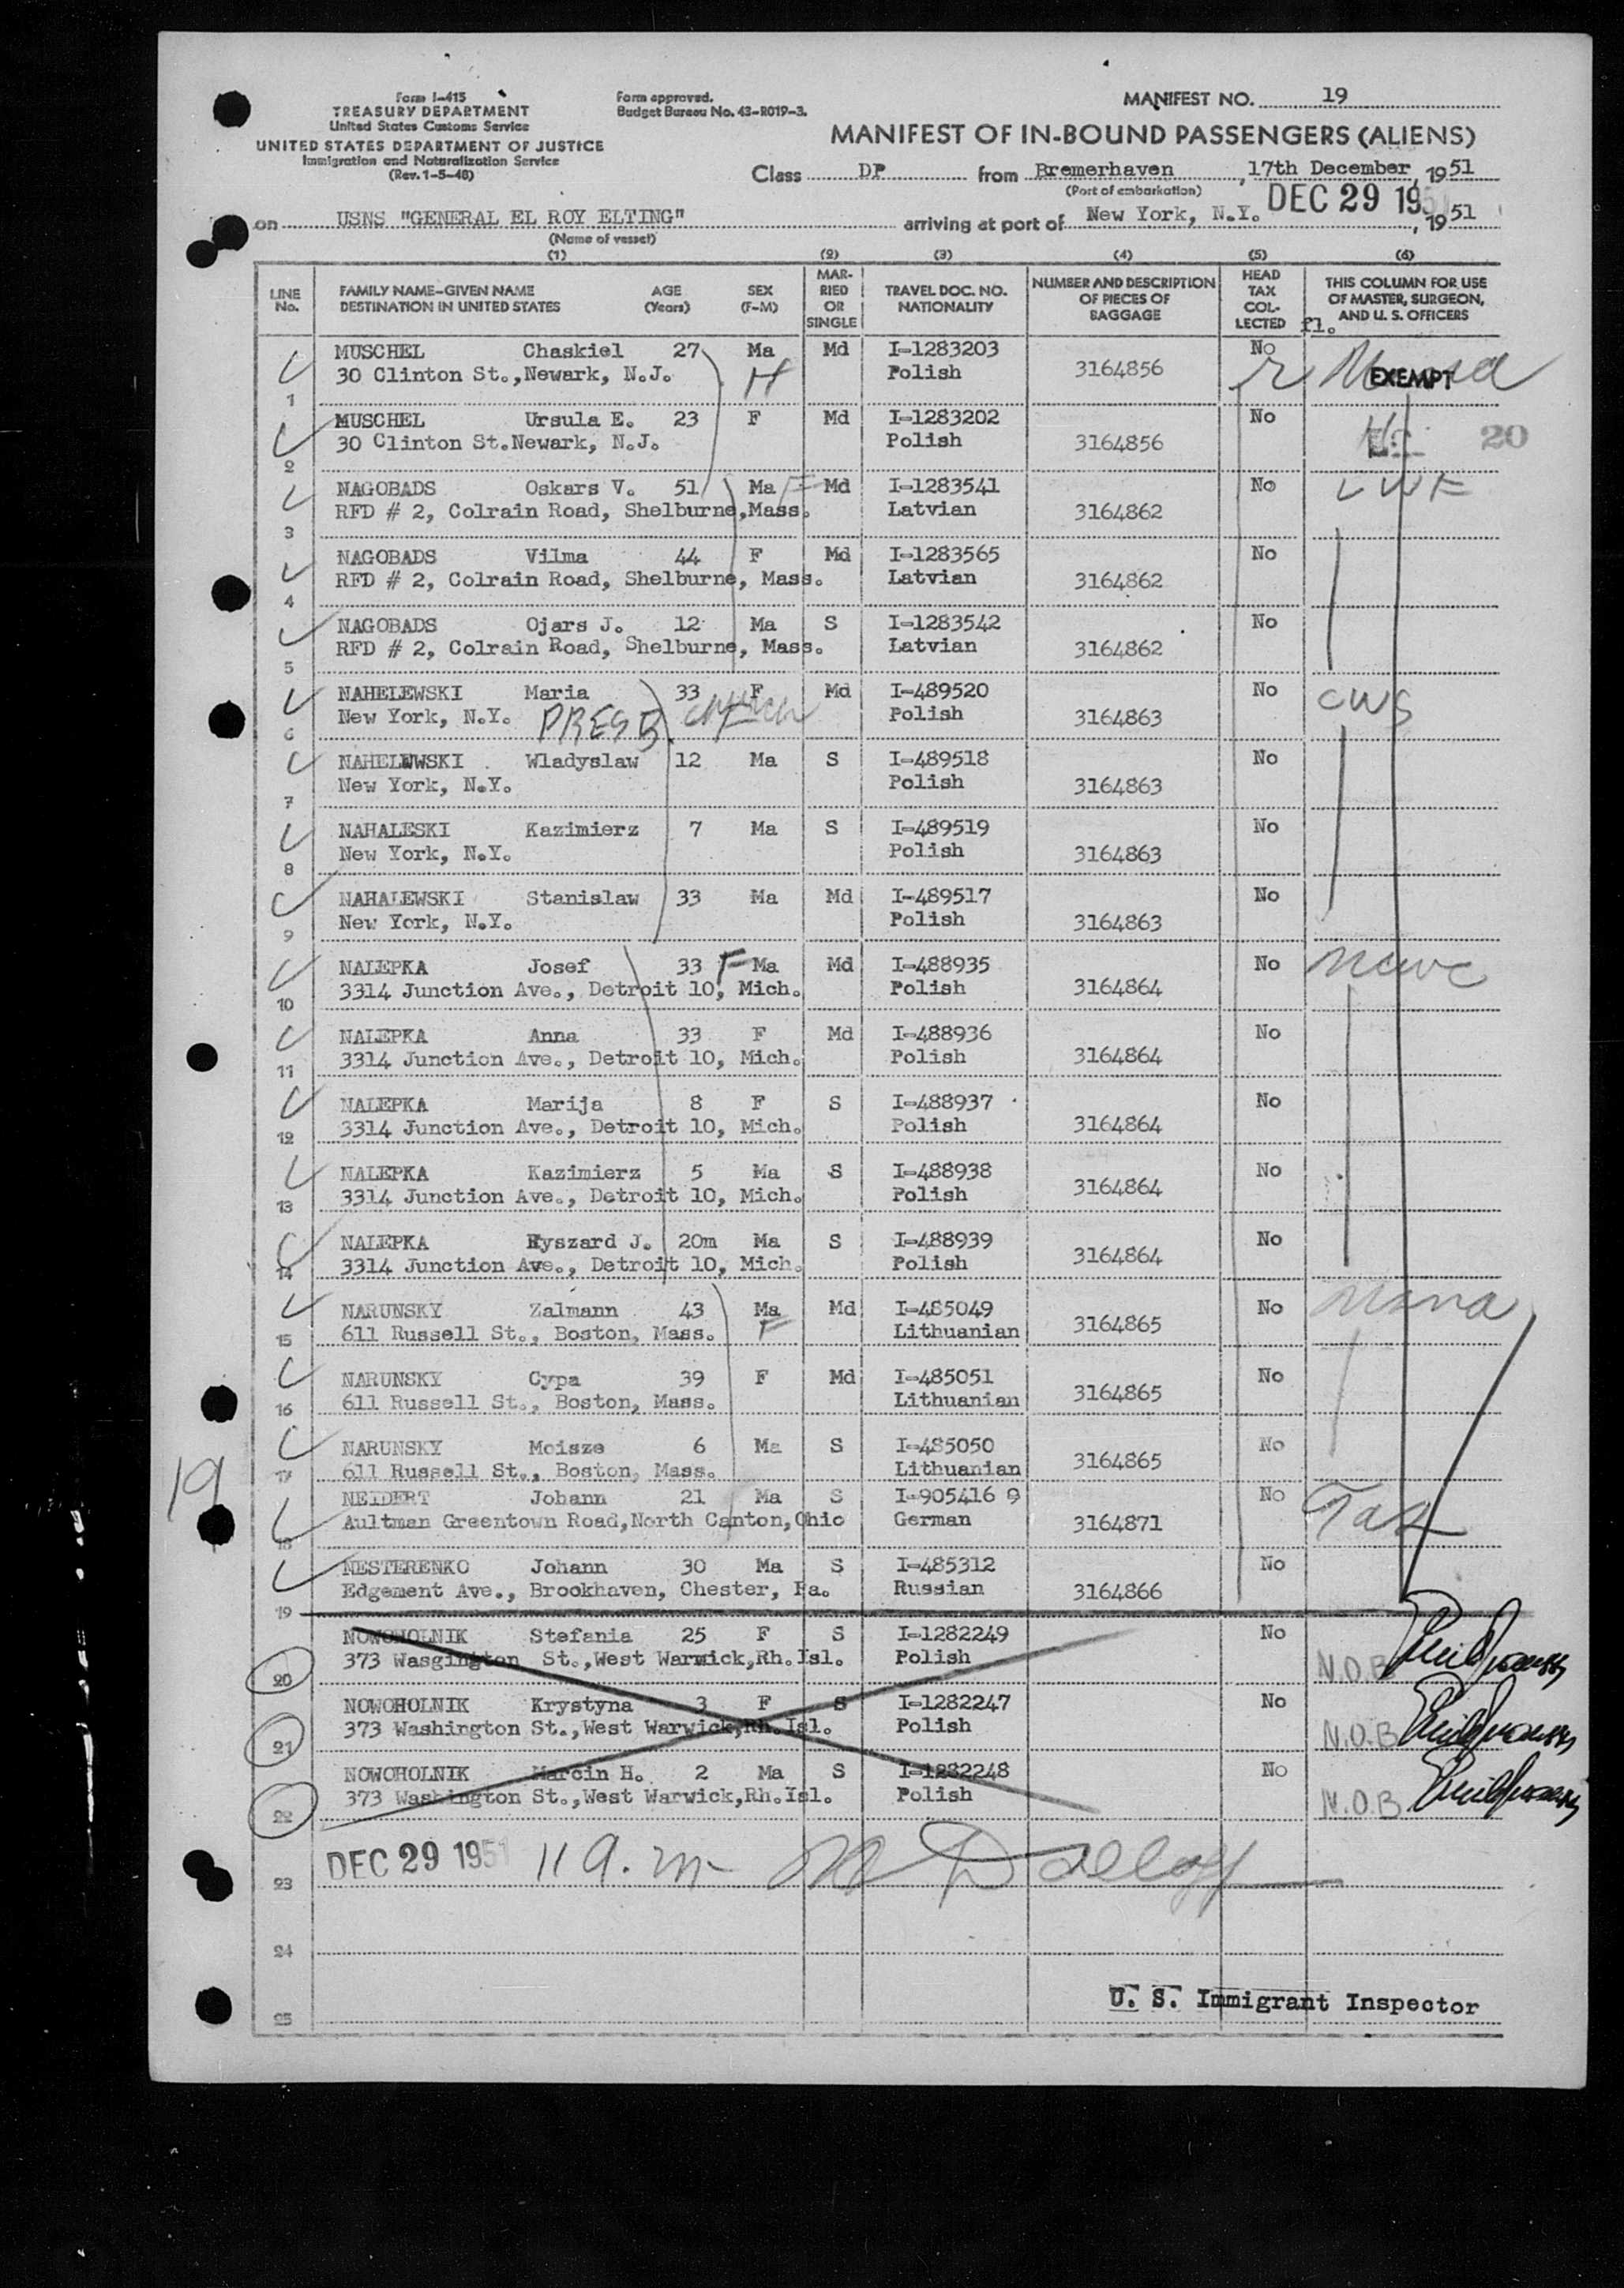 Form I-415
TREASURY DEPARTMENT
United States Customs Service
UNITED STATES DEPARTMENT OF JUSTICE
Immigration and Naturalization Service
(Rev. 1-5-48)
Form approved.
Budget Bureau No. 43-R019-3.
MANIFEST NO. 19
MANIFEST OF IN-BOUND PASSENGERS (ALIENS)
Class DP from Bremerhaven, 17th December, 1951
(Port of embarkation)
on USNS "GENERAL EL ROY ELTING" arriving at port of New York, N.Y. DEC 29 195 , 1951
(Name of vessel)
(1) (2) (3) (4) (5) (6)
LINE No. FAMILY NAME-GIVEN NAME DESTINATION IN UNITED STATES AGE (Years) SEX (F-M) MARRIED OR SINGLE TRAVEL DOC. NO. NATIONALITY NUMBER AND DESCRIPTION OF PIECES OF BAGGAGE HEAD TAX COLLECTED THIS COLUMN FOR USE OF MASTER, SURGEON, AND U. S. OFFICERS
fl.
MUSCHEL Chaskiel 27 Ma Md I-1283203 No
1 30 Clinton St.,Newark, N.J. H Polish 3164856 EXEMPT
MUSCHEL Ursula E. 23 F Md I-1283202 No
2 30 Clinton St.Newark, N.J. Polish 3164856 20
NAGOBADS Oskars V. 51 Ma F Md I-1283541 No LWF
3 RFD # 2, Colrain Road, Shelburne,Mass. Latvian 3164862
NAGOBADS Vilma 44 F Md I-1283565 No
4 RFD # 2, Colrain Road, Shelburne, Mass. Latvian 3164862
NAGOBADS Ojars J. 12 Ma S I-1283542 No
5 RFD # 2, Colrain Road, Shelburne, Mass. Latvian 3164862
NAHELEWSKI Maria 33 F Md I-489520 No CWS
6 New York, N.Y. PRESB. church Polish 3164863
NAHELWWSKI Wladyslaw 12 Ma S I-489518 No
7 New York, N.Y. Polish 3164863
NAHALESKI Kazimierz 7 Ma S I-489519 No
8 New York, N.Y. Polish 3164863
NAHALEWSKI Stanislaw 33 Ma Md I-489517 No
9 New York, N.Y. Polish 3164863
NALEPKA Josef 33 F Ma Md I-488935 No ncwc
10 3314 Junction Ave., Detroit 10, Mich. Polish 3164864
NALEPKA Anna 33 F Md I-488936 No
11 3314 Junction Ave., Detroit 10, Mich. Polish 3164864
NALEPKA Marija 8 F S I-488937 No
12 3314 Junction Ave., Detroit 10, Mich. Polish 3164864
NALEPKA Kazimierz 5 Ma S I-488938 No
13 3314 Junction Ave., Detroit 10, Mich. Polish 3164864
NALEPKA Ryszard J. 20m Ma S I-488939 No
14 3314 Junction Ave., Detroit 10, Mich. Polish 3164864
NARUNSKY Zalmann 43 Ma Md I-485049 No
15 611 Russell St., Boston, Mass. F Lithuanian 3164865
NARUNSKY Cypa 39 F Md I-485051 No
16 611 Russell St., Boston, Mass. Lithuanian 3164865
NARUNSKY Moisze 6 Ma S I-485050 No
17 611 Russell St., Boston, Mass. Lithuanian 3164865
19
NEIDERT Johann 21 Ma S I-905416 9 No
18 Aultman Greentown Road,North Canton,Ohio German 3164871
NESTERENKO Johann 30 Ma S I-485312 No
19 Edgement Ave., Brookhaven, Chester, Pa. Russian 3164866
NOWOHOLNIK Stefania 25 F S I-1282249 No
20 373 Wasgington St.,West Warwick,Rh.Isl. Polish N.O.B
NOWOHOLNIK Krystyna 3 F S I-1282247 No
21 373 Washington St.,West Warwick,Rh.Isl. Polish N.O.B
NOWOHOLNIK Marcin H. 2 Ma S I-1282248 No
22 373 Washington St.,West Warwick,Rh.Isl. Polish N.O.B
23 DEC 29 1951 11 a.m
24
25 U. S. Immigrant Inspector